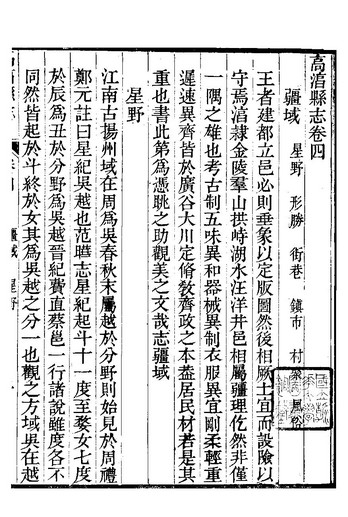 高淳縣志卷四
疆域 星野 形勝 街巷 鎮市 村聚 風俗
王者建都立邑必則垂象以定版圖然後相厥土宜而設險以
守焉滈隷金陵羣山拱峙湖水汪洋井邑相屬疆理仡然非僅
一隅之雄也考古制五味異和器械異制衣服異宜剛柔輕重
遲速異齊皆於廣谷大川定脩敎齊政之本盍居民材若是其
重也書此第為憑眺之助觀美之文哉志疆域
星野
江南古揚州域在周為吳春秋末屬越於分野則始見於周禮
鄭元註曰星紀吳越也范曄志星紀起斗十一度至婺女七度
於辰為丑於分野為吳越晉紀費直蔡邕一行諸說雖度各不
同然皆起於斗終於女其為吳越之分一也觀之方域吳在越
疆域 星野